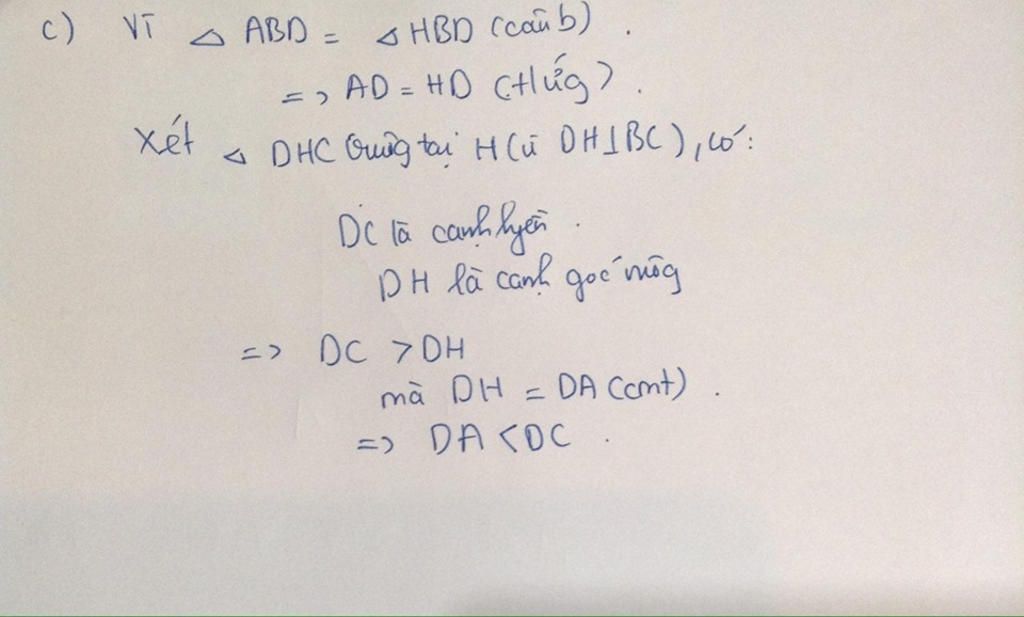 c) Vì △ ABD = △ HBD (câu b).
=> AD = HD (t/ứng).
Xét △ DHC vuông tại H (vì DH⊥BC), có:
DC là cạnh huyền.
DH là cạnh góc vuông
=> DC > DH
mà DH = DA (cmt).
=> DA < DC.